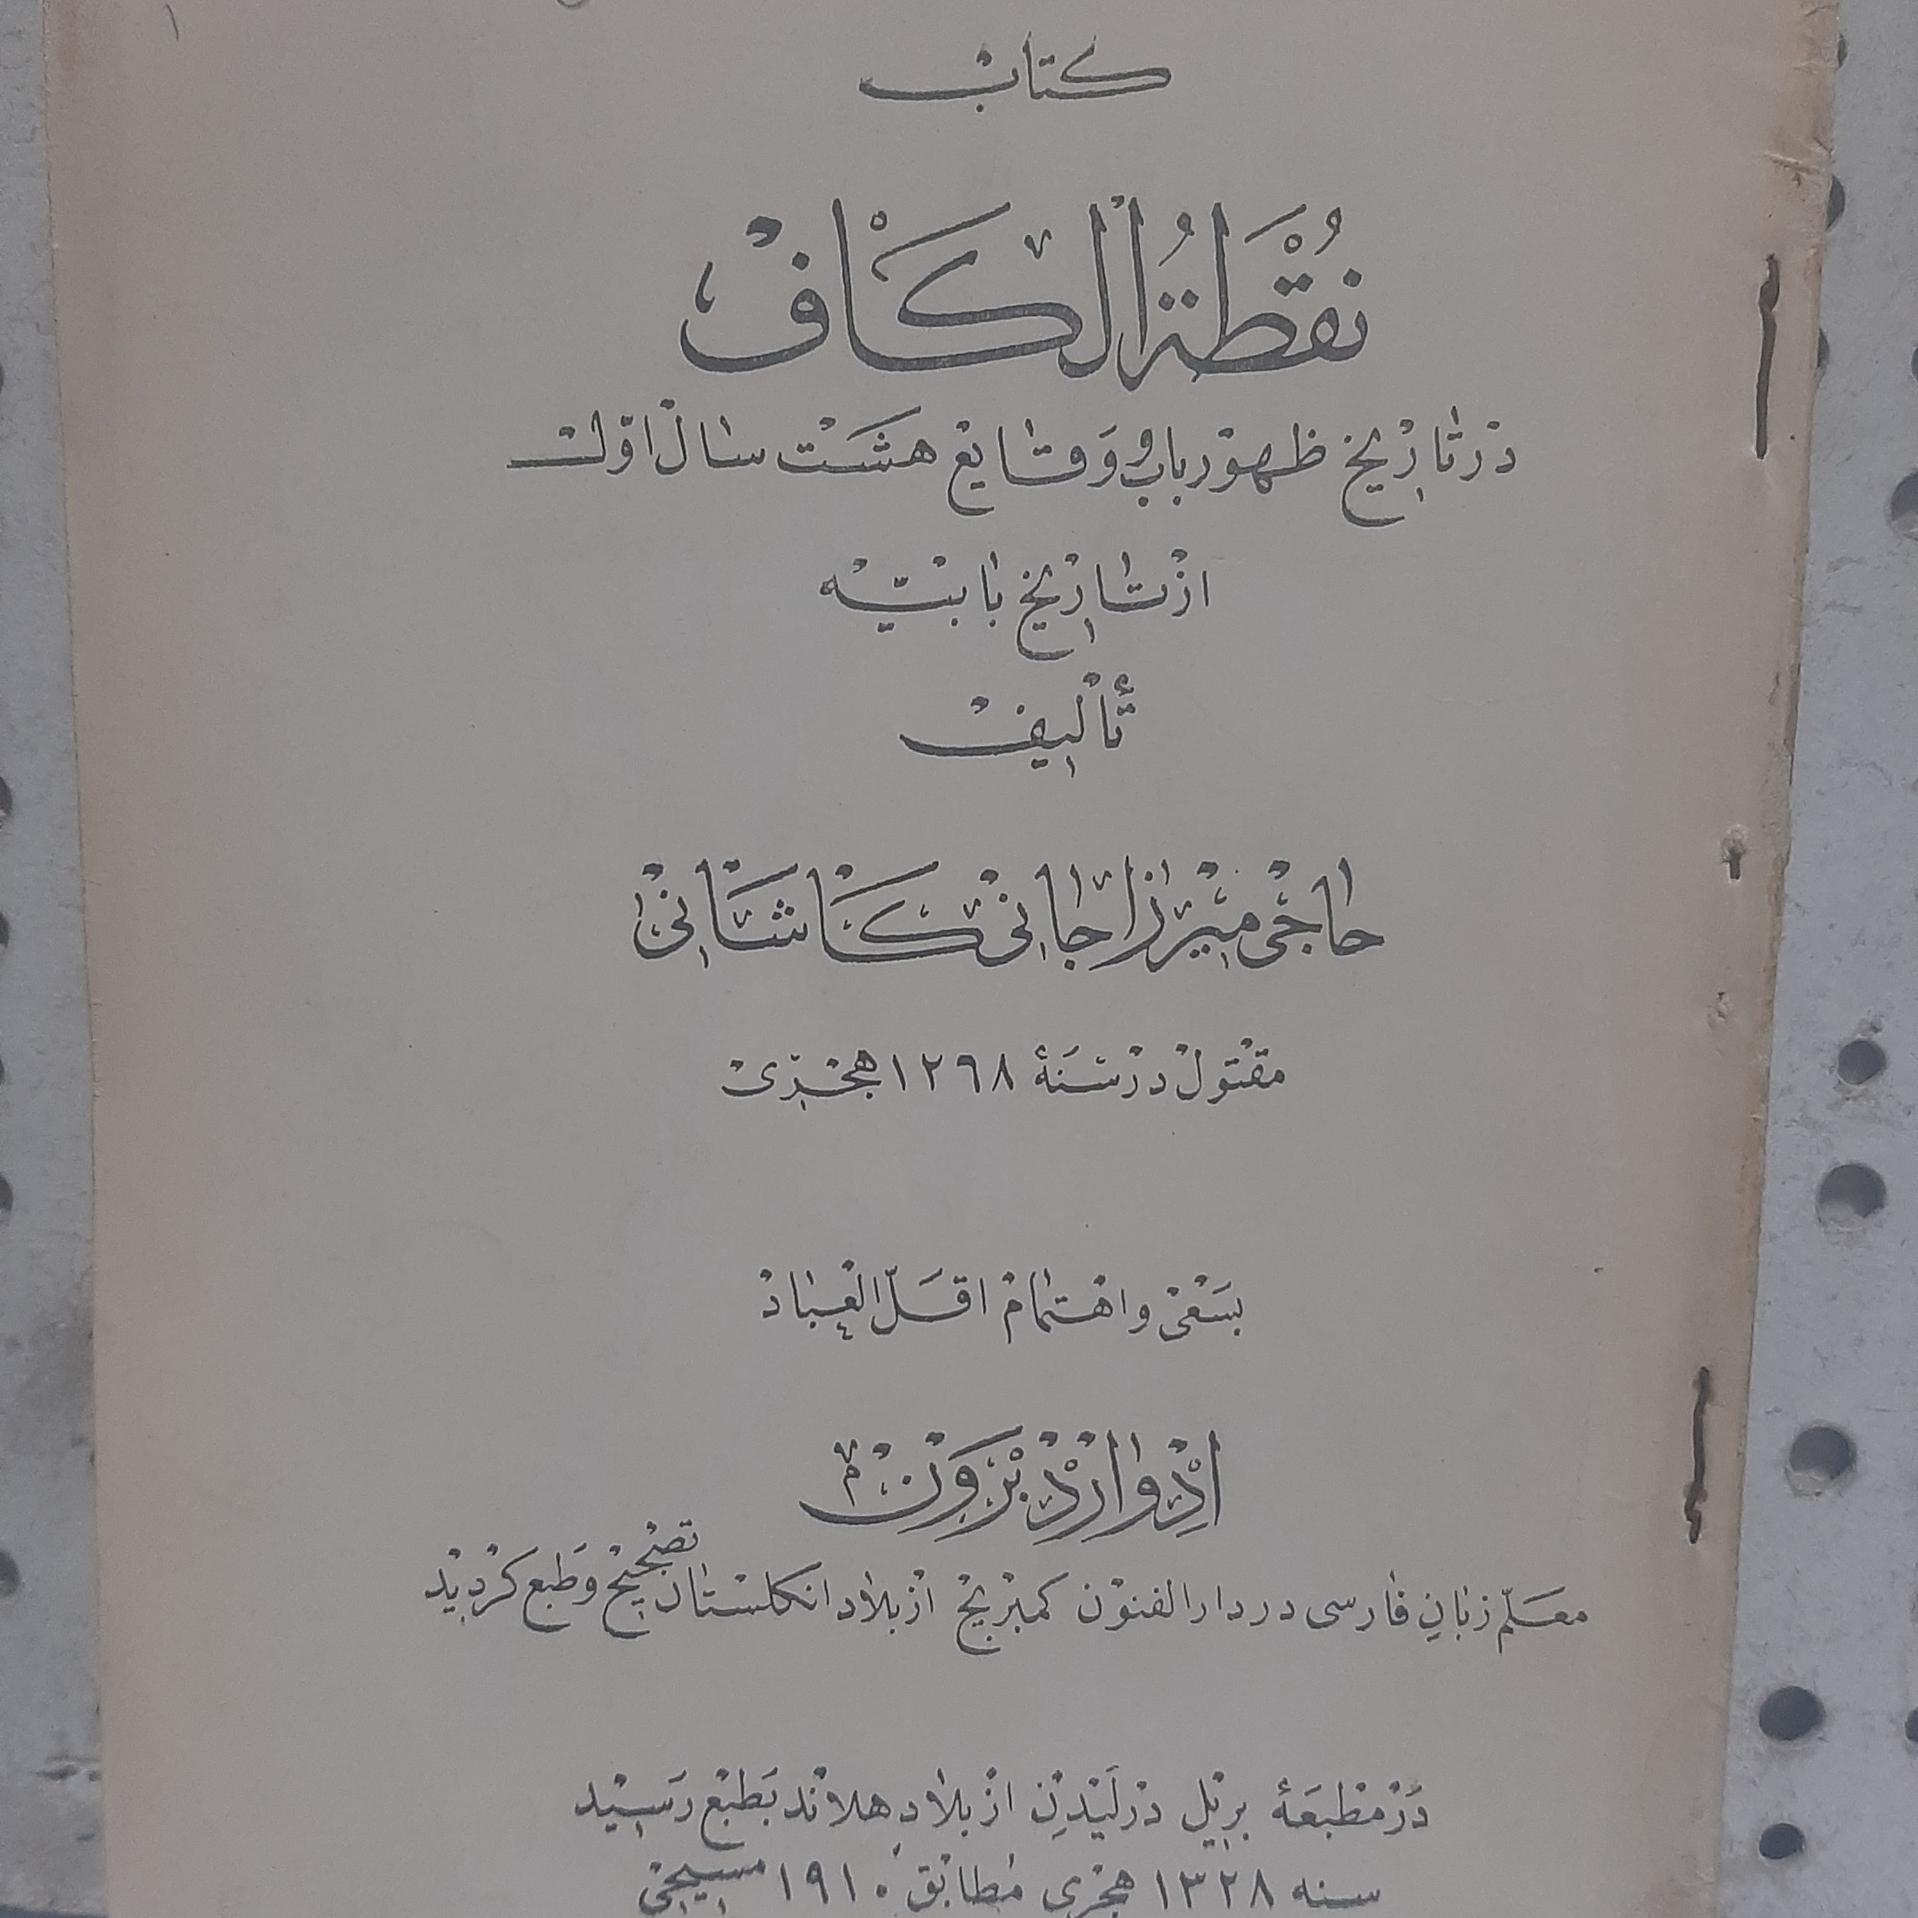 كتاب
نُقْطَةُ الْكَافْ
در تاریخ ظهور باب و وَقایع هشت سال اوّل
از تاریخ بابیّه
تألیف
حاجی میرزا جانی کاشانی
مقتول در سَنَهٔ ١٢٦٨ هجری
بسعی و اهتمام اقلّ العباد
ادوارد برون
معلّم زبانِ فارسی در دار الفنون کمبریج از بلاد انکلستان تصحیح و طبع کردید
در مطبعهٔ بریل در لَیْدِن از بلاد هلاند بطبع رسید
سنه ١٣٢٨ هجری مطابق ١٩١٠ مسیحی